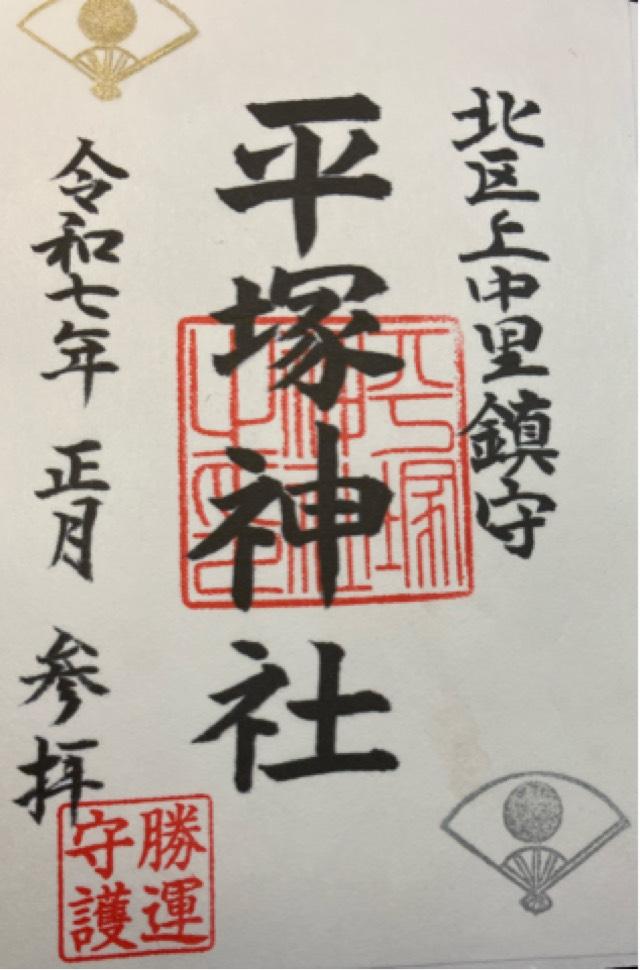 北区上中里鎮守
平塚神社
平塚神社之印
令和七年 正月 参拝
勝運
守護